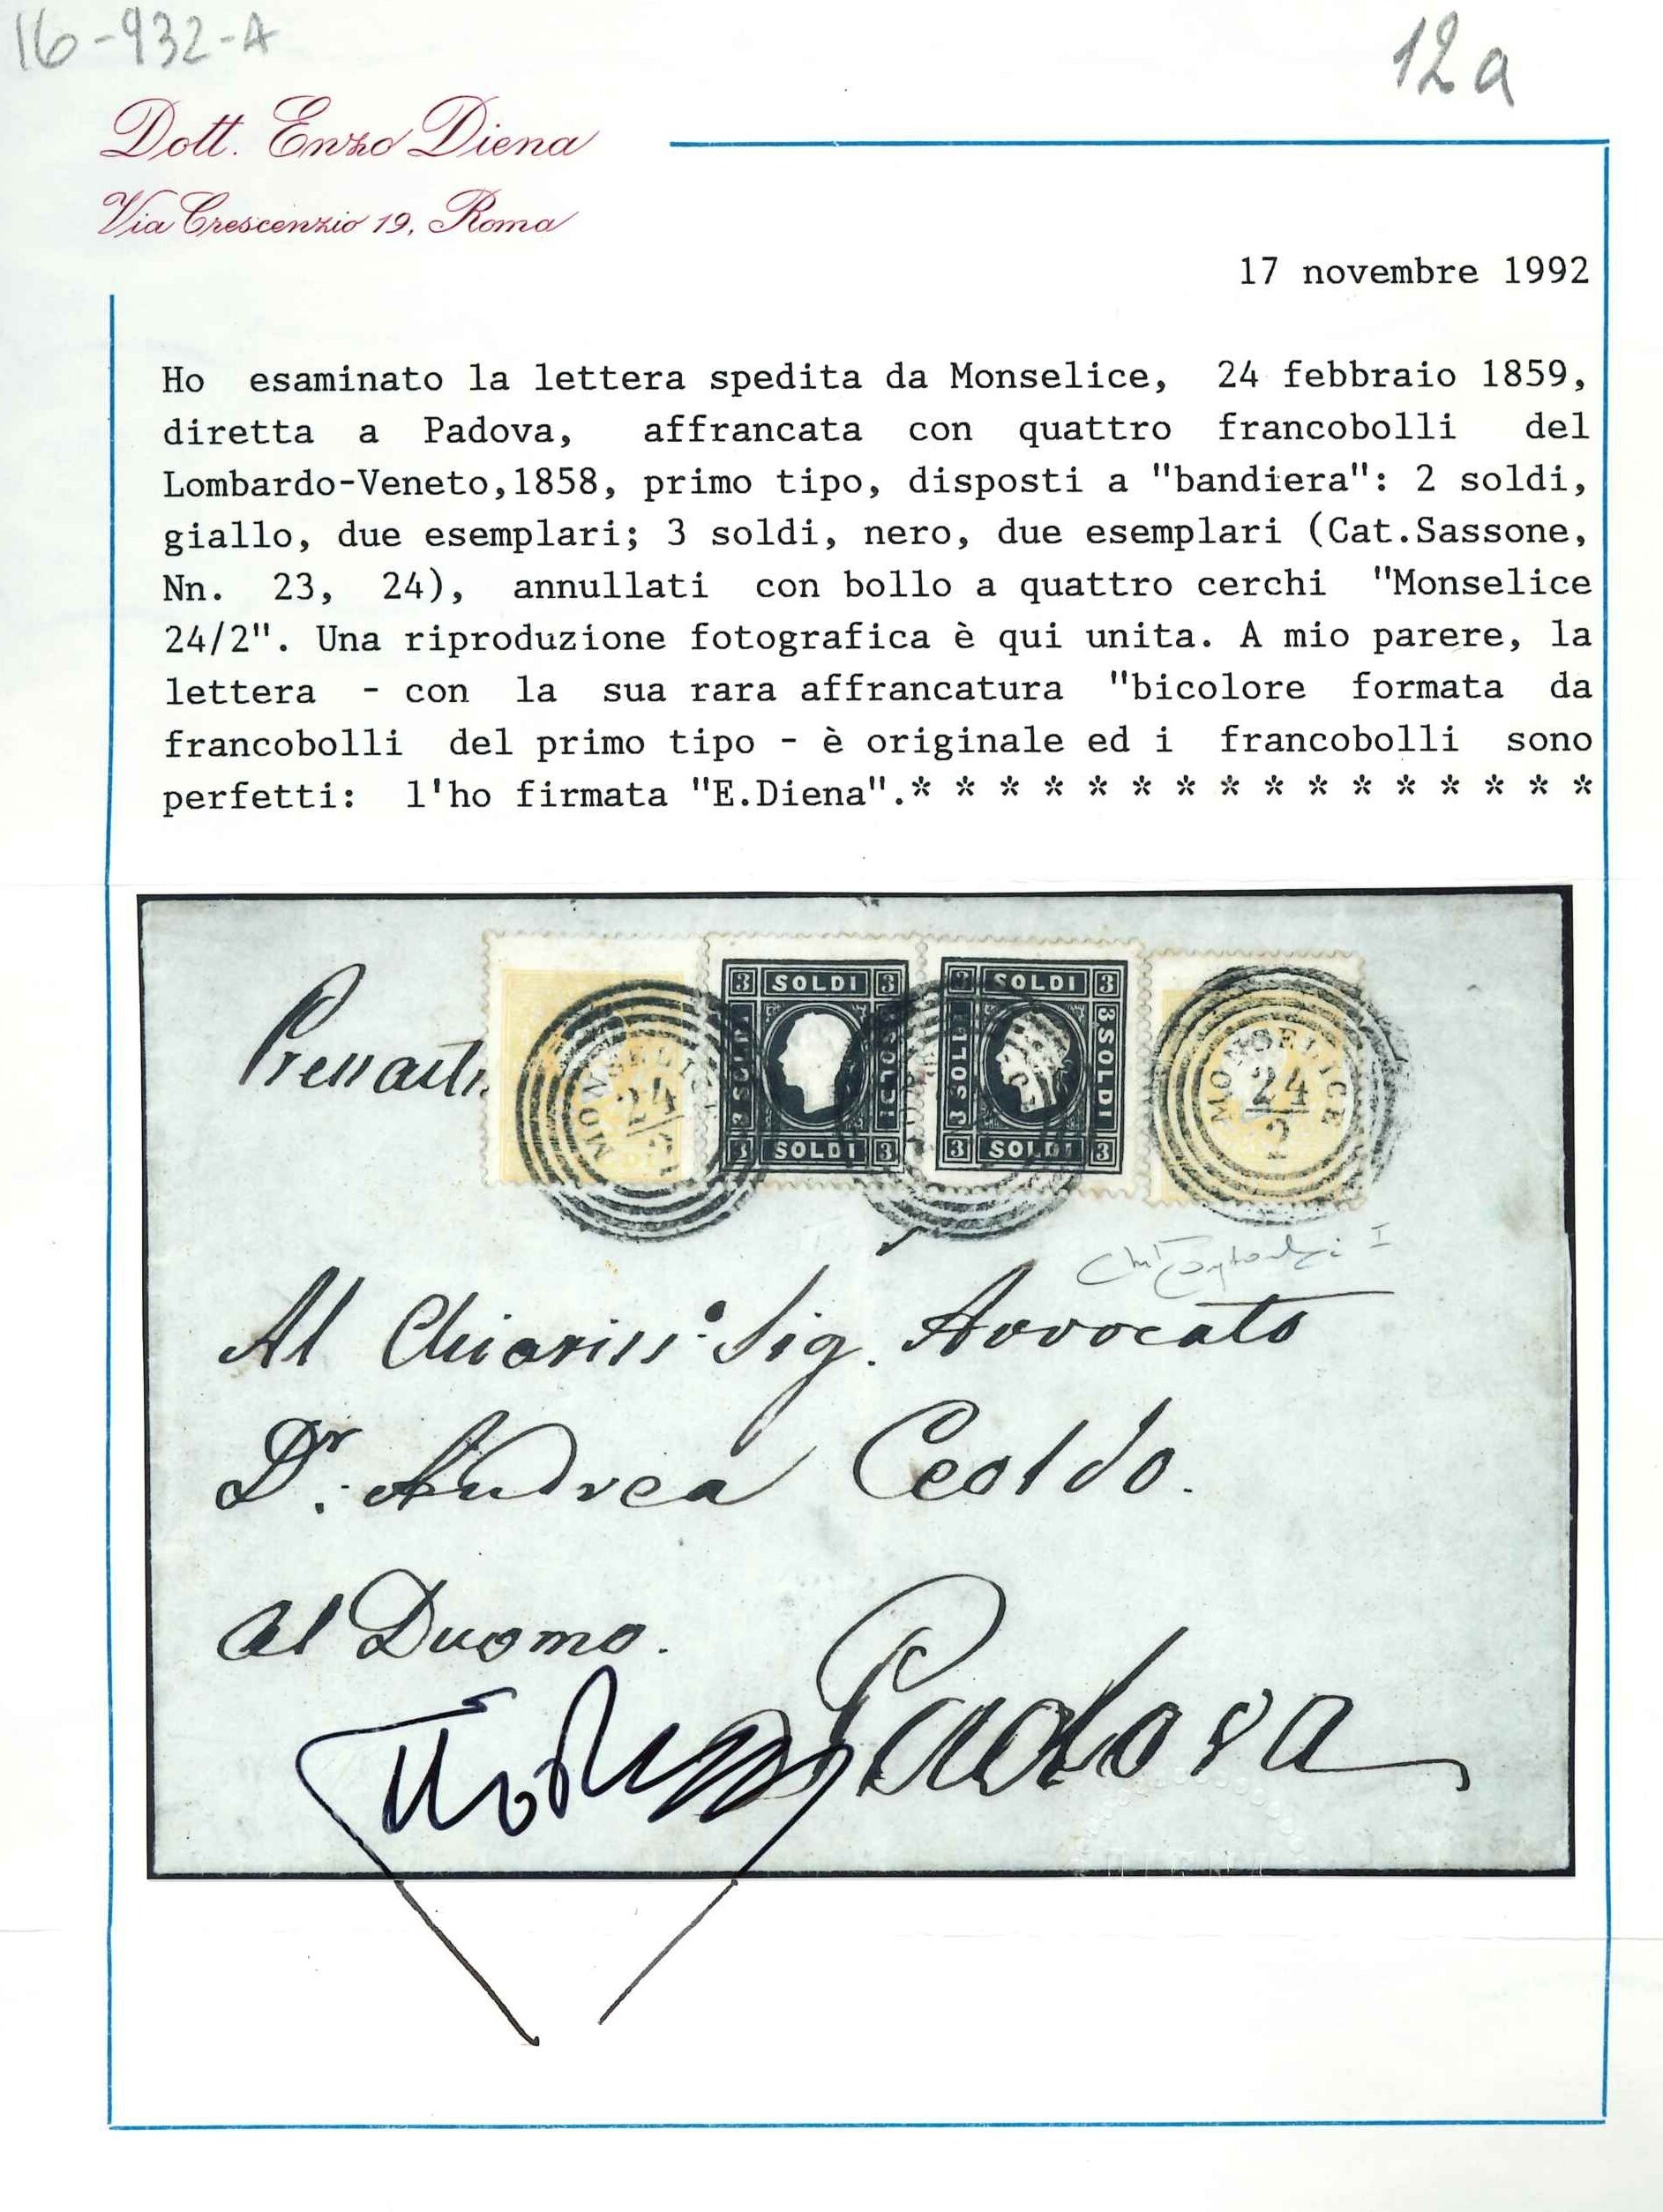 16-932-A
12a
Dott. Enzo Diena
Via Crescenzio 19, Roma
17 novembre 1992
Ho esaminato la lettera spedita da Monselice, 24 febbraio 1859,
diretta a Padova, affrancata con quattro francobolli del
Lombardo-Veneto,1858, primo tipo, disposti a "bandiera": 2 soldi,
giallo, due esemplari; 3 soldi, nero, due esemplari (Cat.Sassone,
Nn. 23, 24), annullati con bollo a quattro cerchi "Monselice
24/2". Una riproduzione fotografica è qui unita. A mio parere, la
lettera - con la sua rara affrancatura "bicolore formata da
francobolli del primo tipo - è originale ed i francobolli sono
perfetti: l'ho firmata "E.Diena".* * * * * * * * * * * * * * * *
MONSELICE
24/2
3 SOLDI 3
3 SOLDI
3 SOLDI
3 SOLDI 3
3 SOLDI 3
3 SOLDI
3 SOLDI
3 SOLDI 3
MONSELICE
24
2
Al Chiariss:º Sig. Avvocato
Dr. Andrea Ceoldo.
al Duomo.
Padova